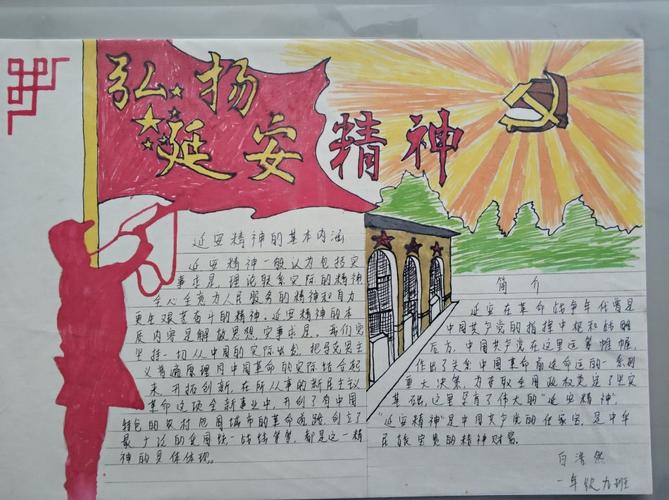 弘扬
延安精神
延安精神的基本内涵
延安精神一般认为包括实
事求是、理论联系实际的精神
全心全意为人民服务的精神和自力
更生艰苦奋斗的精神。延安精神的本
质内容是解放思想,实事求是。我们
坚持一切从中国的实际出发,把马克思主
义普遍原理同中国革命的实际结合起
来,开拓创新,在所从事的新民主主义
革命这项全新事业中,开创了有中国
特色的农村包围城市的革命道路,创立了
最广泛的爱国统一战线等等,都是这一精
神的具体体现。
简介
延安在革命战争年代曾是
中国共产党的指挥中枢和战略
后方,中国共产党在这里运筹帷幄,
作出了关系中国革命前途命运的一系列
重大决策,为夺取全国政权奠定了坚实
基础,这里孕育了伟大的“延安精神”,
“延安精神”是中国共产党的传家宝,是中华
民族宝贵的精神财富。
白
一年级九班